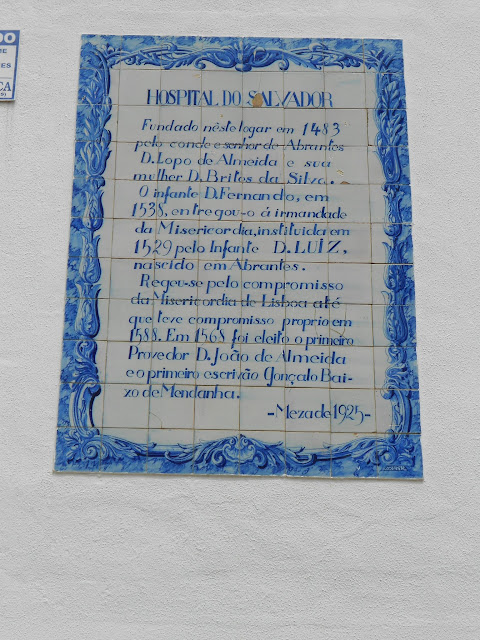 DO
ME
ES
CA
HOSPITAL DO SALVADOR
Fundado nêste logar em 1483
pelo conde e senhor de Abrantes
D. Lopo de Almeida e sua
mulher D. Brites da Silva.
O infante D. Fernando, em
1538, entregou-o á irmandade
da Misericordia, instituida em
1529 pelo Infante D. LUÍZ,
nascido em Abrantes.
Regeu-se pelo compromisso
da Misericordia de Lisboa até
que teve compromisso proprio em
1588. Em 1568 foi eleito o primeiro
Provedor D. João de Almeida
e o primeiro escrivão Gonçalo Bai-
xo de Mendanha.
-Meza de 1925-